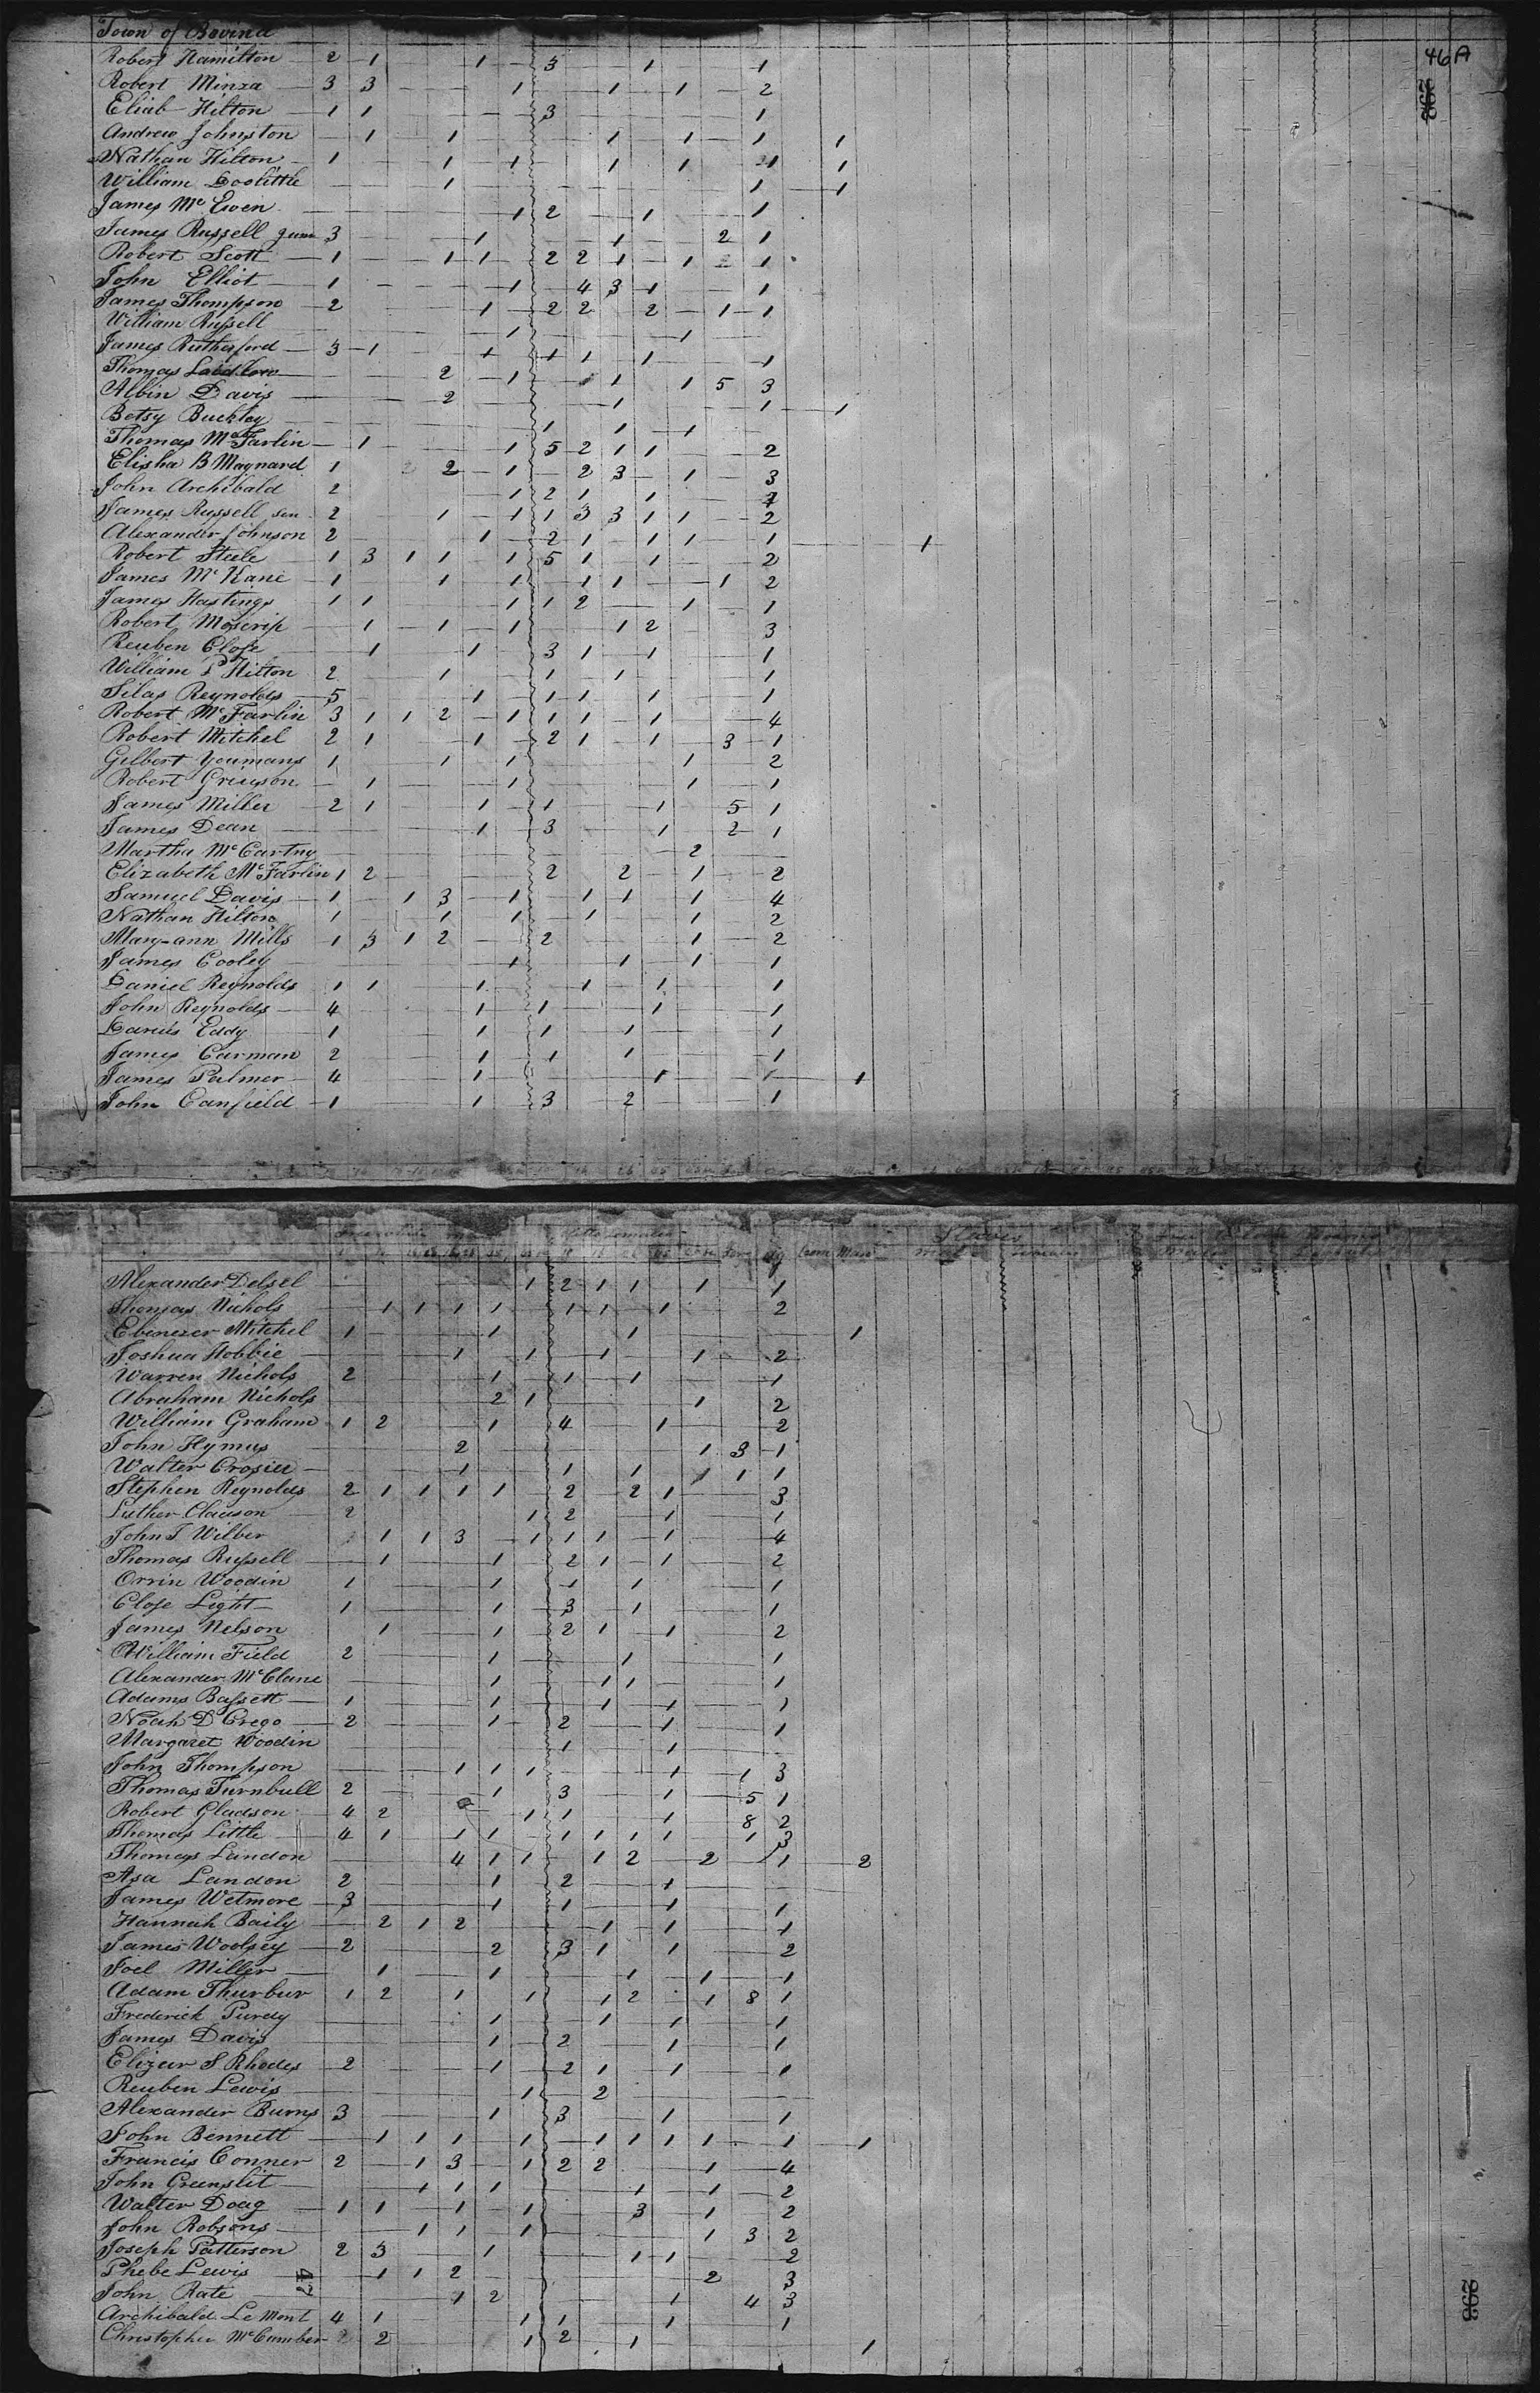 Town of Bovina
46A
298
Robert Hamilton 2 1 1 3 1 1
Robert Minza 3 3 1 1 1 2
Eliab Hilton 1 1 3 1
Andrew Johnston 1 1 1 1 1 1
Nathan Hilton 1 1 1 1 1 1 1
William Doolittle 1 1 1
James Mc Ewen 1 2 1 1
James Russell jun 3 1 1 2 1
Robert Scott 1 1 1 2 2 1 1 1
John Elliot 1 1 4 3 1 1
James Thompson 2 1 2 2 2 1 1
William Russell 1 1
James Rutherford 3 1 1 1 1 1 1
Thomas Laidlow 2 1 1 1 5 3
Albin Davis 2 1 1 1
Betsy Buckley 1 1 1
Thomas Mc Farlin 1 1 5 2 1 1 2
Elisha B Maynard 1 2 1 2 3 1 3
John Archibald 2 1 2 1 1
James Russell sen 2 1 1 1 3 3 1 1 2
Alexander Johnson 2 1 2 1 1 1 1 1
Robert Steele 1 3 1 1 1 5 1 1 2
James Mc Kane 1 1 1 1 1 1 2
James Hastings 1 1 1 1 2 1 1
Robert Moscrip 1 1 1 1 2 3
Reuben Close 1 1 3 1 1 1
William P Hilton 2 1 1 1 1
Silas Reynolds 5 1 1 1 1 1
Robert Mc Farlin 3 1 1 2 1 1 1 1 4
Robert Mitchel 2 1 1 2 1 1 3 1
Gilbert Youmans 1 1 1 1 2
Robert Grieuson 1 1 1 1
James Miller 2 1 1 1 1 5 1
James Dean 1 3 1 2 1
Martha Mc Cartny 2
Elizabeth Mc Farlin 1 2 2 2 1 2
Samuel Davis 1 1 3 1 1 1 1 4
Nathan Hilton 1 1 1 1 1 2
Mary-ann Mills 1 3 1 2 2 1 2
James Cooley 1 1 1 1
Daniel Reynolds 1 1 1 1 1 1
John Reynolds 4 1 1 1 1
Darius Eddy 1 1 1 1 1
James Carman 2 1 1 1 1
James Palmer 4 1 1 1 1
John Canfield 1 1 3 2 1
Slaves
Alexander Delsel 1 2 1 1 1 1
Thomas Nichols 1 1 1 1 1 1 1 2
Ebenezer Mitchel 1 1 1 1
Joshua Hobbie 1 1 1 1 2
Warren Nichols 2 1 1 1 1
Abraham Nichols 2 1 1 2
William Graham 1 2 1 4 1 2
John Hymus 2 1 3 1
Walter Crosier 1 1 1 1 1 1
Stephen Reynolds 2 1 1 1 1 2 2 1 3
Luther Clauson 2 1 2 1 1
John T Wilber 1 1 3 1 1 1 1 4
Thomas Russell 1 1 2 1 1 2
Orrin Woodin 1 1 1 1 1
Close Light 1 1 3 1 1
James Nelson 1 1 2 1 1 2
William Field 2 1 1 1
Alexander Mc Clane 1 1 1 1
Adams Bassett 1 1 1 1 1
Noah D Crego 2 1 2 1 1
Margaret Woodin 1 1
John Thompson 1 1 1 1 1 3
Thomas Turnbull 2 1 3 1 5 1
Robert Gladson 4 2 1 1 1 8 2
Thomas Little 4 1 1 1 1 1 1 1 1 3
Thomas Landon 4 1 1 1 2 2 1 2
Asa Landon 2 1 2 1
James Wetmore 3 1 1 1 1
Hannah Baily 2 1 2 1 1 1
James Woolsey 2 2 3 1 1 2
Joel Miller 1 1 1 1 1
Adam Thurbur 1 2 1 1 1 2 1 8 1
Frederick Purdy 1 1 1 1
James Davis 1 2 1 1
Elizur S Rhodes 2 1 2 1 1 1
Reuben Lewis 1 2
Alexander Burns 3 1 3 1 1
John Bennett 1 1 1 1 1 1 1 1 1 1
Francis Conner 2 1 3 1 2 2 1 4
John Greenslit 1 1 1 1 1 2
Walter Doag 1 1 1 1 3 1 2
John Robsons 1 1 1 1 3 2
Joseph Patterson 2 3 1 1 1 2
Phebe Lewis 1 1 2 2 3
John Rate 1 2 1 4 3
Archibald Le Mont 4 1 1 1 1 1
Christopher Mc Cumber 2 1 2 1 1
47
298